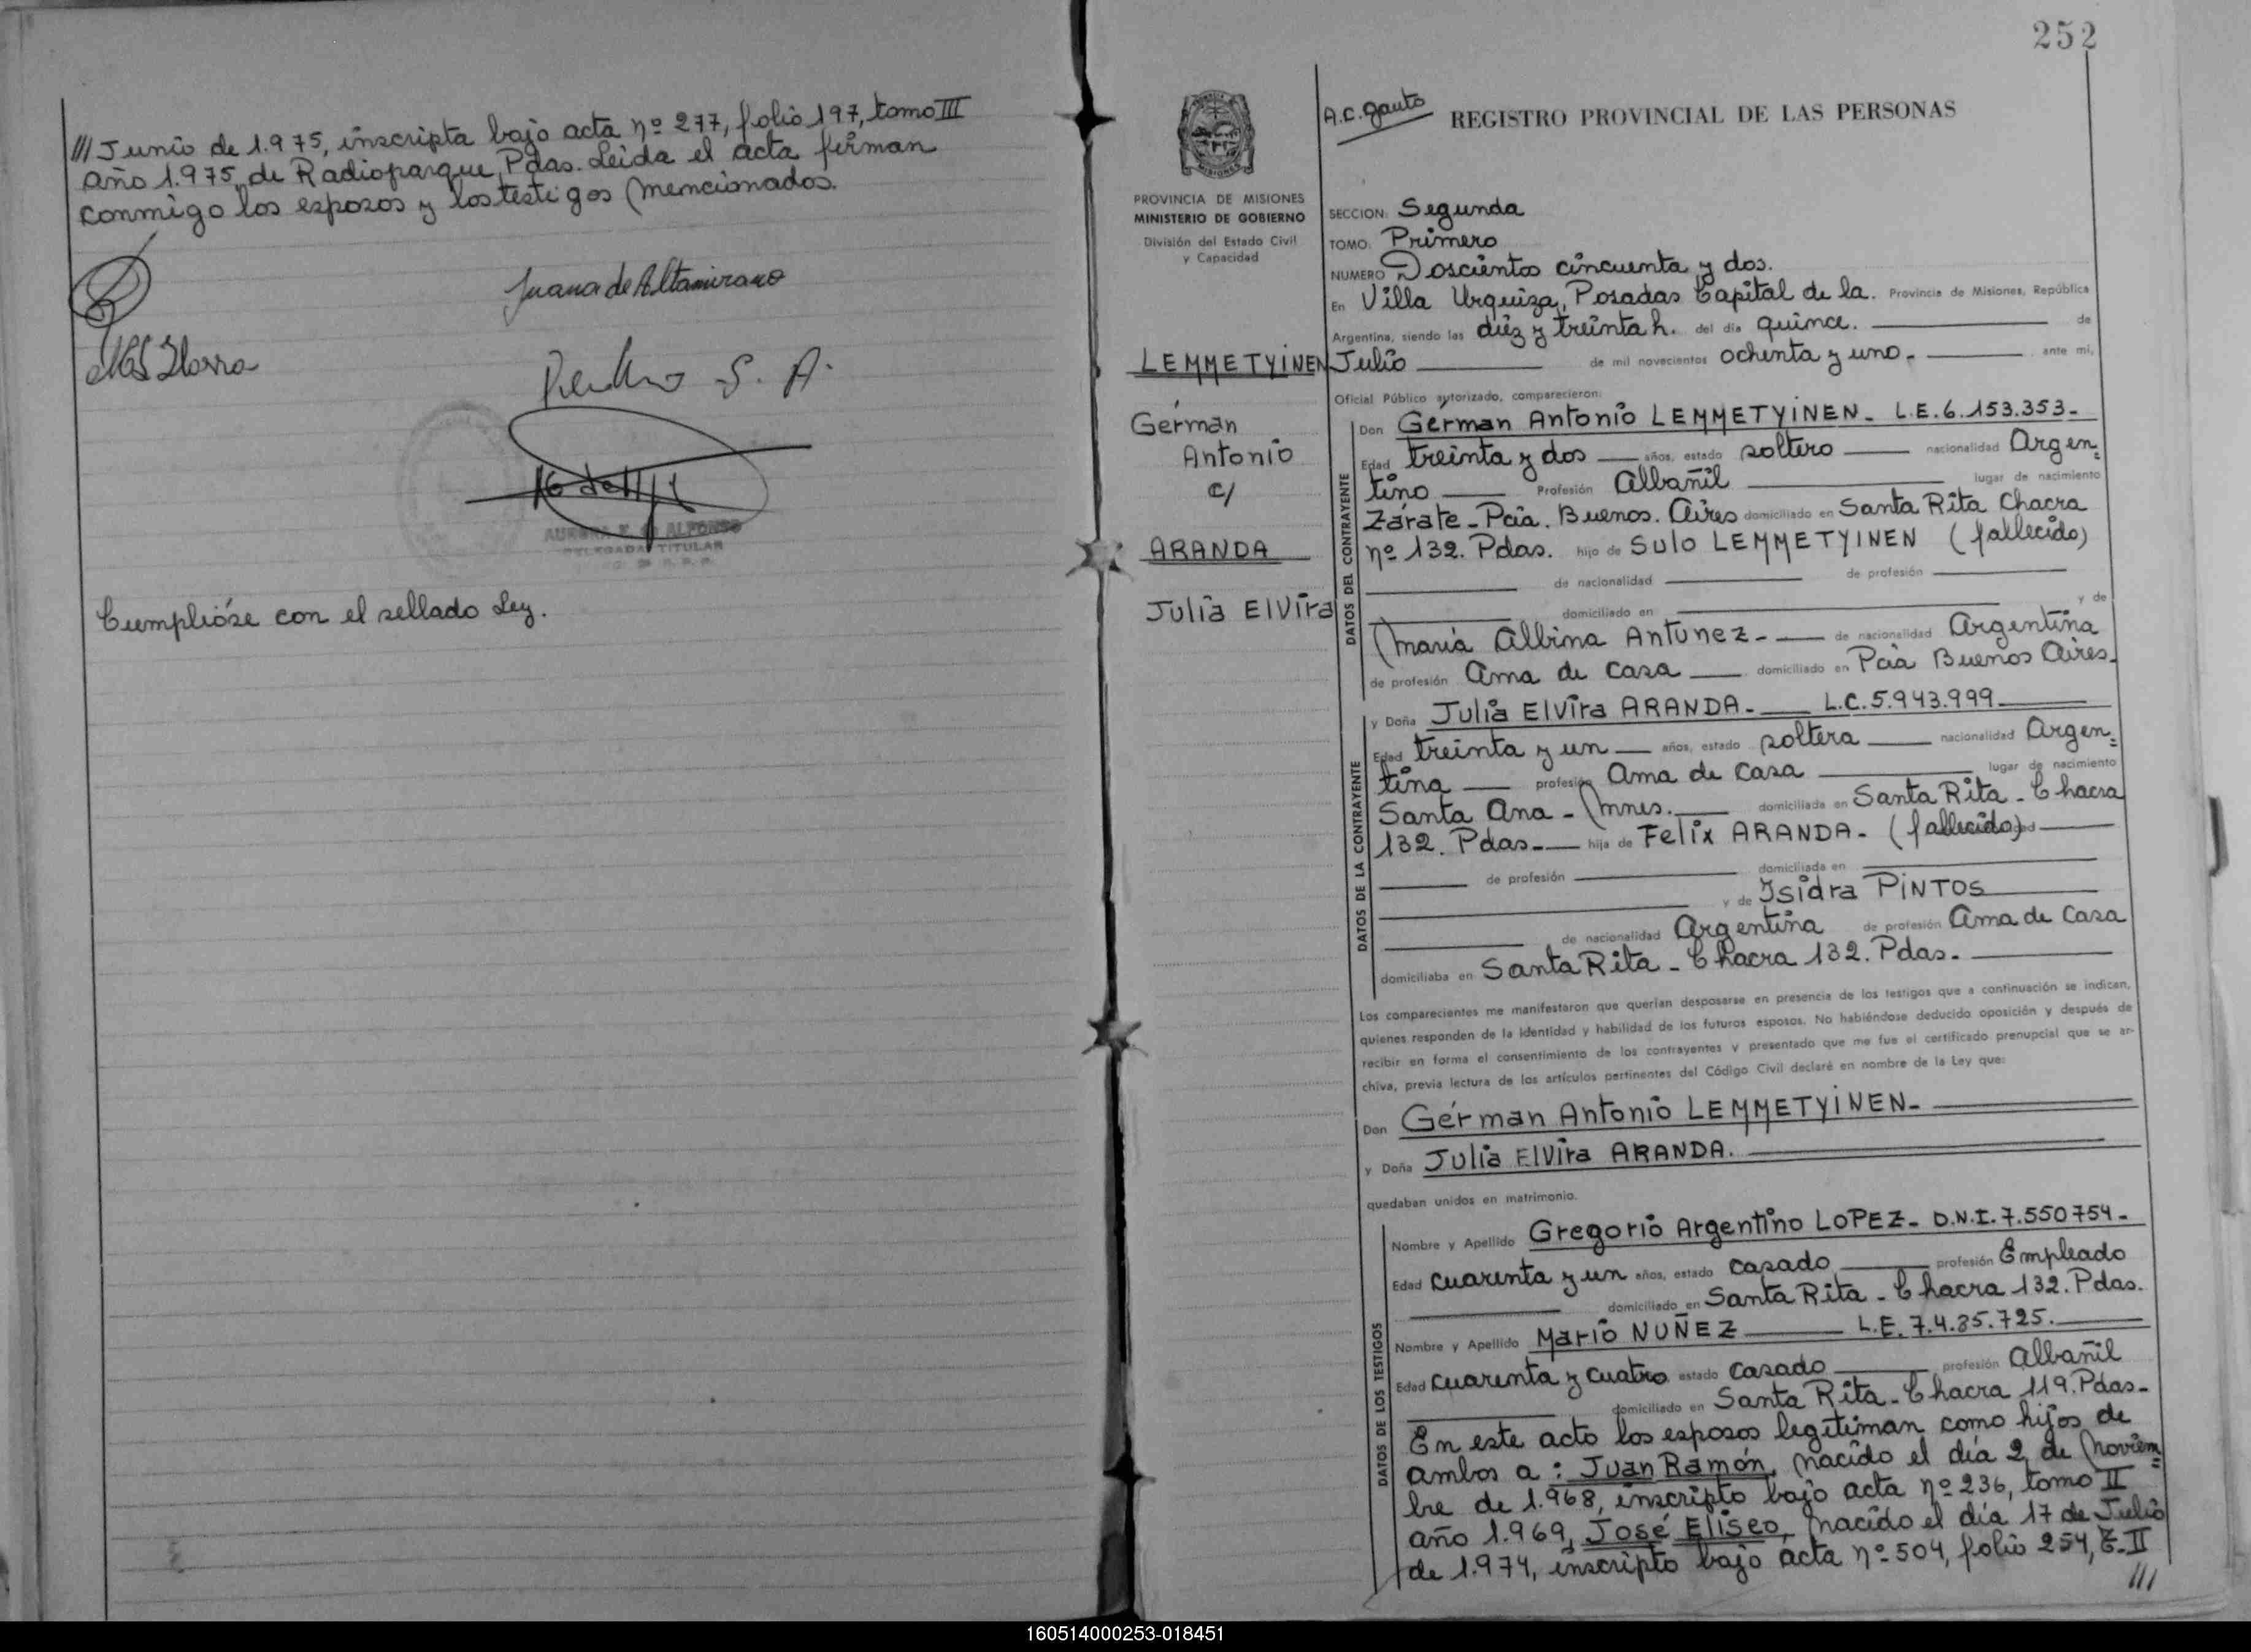 /// Junio de 1.975, inscripta bajo acta nº 277, folio 197, tomo III
año 1.975, de Radioparque, Pdas. Leida el acta firman
conmigo los esposos y los testigos mencionados.
Juana de Altamirano
S. A.
AURORA E. ALFONSO
DELEGADA TITULAR
Cumplióse con el sellado Ley.
252
A.C. Gauto
REGISTRO PROVINCIAL DE LAS PERSONAS
PROVINCIA DE MISIONES
MINISTERIO DE GOBIERNO
División del Estado Civil
y Capacidad
LEMMETYINEN
Gérman
Antonio
c/
ARANDA
Julia Elvira
SECCION: Segunda
TOMO: Primero
NUMERO Doscientos cincuenta y dos.
En Villa Urquiza, Posadas Capital de la. Provincia de Misiones, República
Argentina, siendo las diez y treinta h. del día quince. de
Julio de mil novecientos ochenta y uno. ante mi,
Oficial Público autorizado, comparecieron:
DATOS DEL CONTRAYENTE
Don Gérman Antonio LEMMETYINEN - L.E. 6.153.353-
Edad treinta y dos años, estado soltero nacionalidad Argen=
tino Profesión Albañil lugar de nacimiento
Zárate - Pcia. Buenos. Aires domiciliado en Santa Rita Chacra
nº 132. Pdas. hijo de Sulo LEMMETYINEN (fallecido)
de nacionalidad de profesión
domiciliado en y de
María Albina Antunez - de nacionalidad Argentina
de profesión Ama de casa domiciliado en Pcia Buenos Aires.
DATOS DE LA CONTRAYENTE
y Doña Julia Elvira ARANDA - L.C. 5.943.999
Edad treinta y un años, estado soltera nacionalidad Argen=
tina profesión Ama de casa lugar de nacimiento
Santa Ana - Mnes. domiciliada en Santa Rita - Chacra
132. Pdas. - hija de Felix ARANDA - (fallecido)
de profesión domiciliada en
y de Isidra PINTOS
de nacionalidad Argentina de profesión Ama de casa
domiciliaba en Santa Rita - Chacra 132. Pdas.
Los comparecientes me manifestaron que querían desposarse en presencia de los testigos que a continuación se indican,
quienes responden de la identidad y habilidad de los futuros esposos. No habiéndose deducido oposición y después de
recibir en forma el consentimiento de los contrayentes y presentado que me fue el certificado prenupcial que se ar-
chiva, previa lectura de los artículos pertinentes del Código Civil declaré en nombre de la Ley que:
Don Gérman Antonio LEMMETYINEN -
y Doña Julia Elvira ARANDA.
quedaban unidos en matrimonio.
DATOS DE LOS TESTIGOS
Nombre y Apellido Gregorio Argentino LOPEZ - D.N.I. 7.550754 -
Edad cuarenta y un años, estado casado profesión Empleado
domiciliado en Santa Rita - Chacra 132. Pdas.
Nombre y Apellido Mario NUÑEZ L.E. 7.4.85.725.
Edad cuarenta y cuatro estado casado profesión Albañil
domiciliado en Santa Rita - Chacra 119. Pdas -
En este acto los esposos legitiman como hijos de
ambos a: Juan Ramón, nacido el día 2 de Noviem=
bre de 1.968, inscripto bajo acta nº 236, tomo II
año 1.969, José Eliseo, nacido el día 17 de Julio
de 1.974, inscripto bajo acta nº 504, folio 254, T. II
///
160514000253-018451